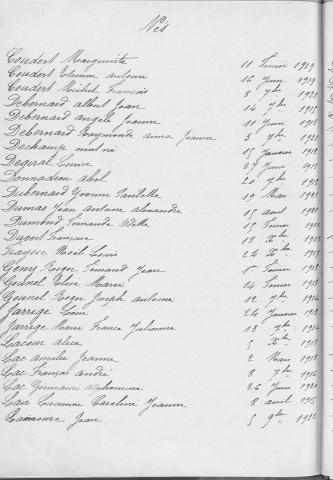 Nés
Coudert Marguerite 11 février 1919
Coudert Etienne Antoine 16 Juin 1919
Coudert Michel François 8 7bre 1921
Debernard Albert Jean 14 7bre
Debernard Angèle Jeanne 11 Juin 1918
Debernard Raymonde Anna Jeanne 3 7bre 1921
Dechamp mort né 15 Janvier 1918
Degeral Louise 27 Juin 1918
Donnadieu Abel 20 1918
Dubernard Yvonne 19 Mars 1921
Dumas Jean Antoine Alexandre 15 Avril 1921
Dumond Fernande Odette 15 février
Dupont Française 18 Xbre
Fraysse Noël Louis 24 Xbre 1917
Geny Roger Fernand Jean 15 février 1918
Gounel Elise Marie 14 février 1918
Gounel Roger Joseph Antoine 12 7bre 1914
Jarrige Léon 24 Janvier 1918
Jarrige Marie France Julienne 13 7bre 1914
Lacour Alice 5 Xbre 1918
Lac Amélie Jeanne 2 Mars 1918
Lac François André 8 7bre 1916
Lac Germaine 26 Juin 1920
Lair Lucienne Caroline Jeanne 8 Avril 1915
Jean 5 9bre 1922